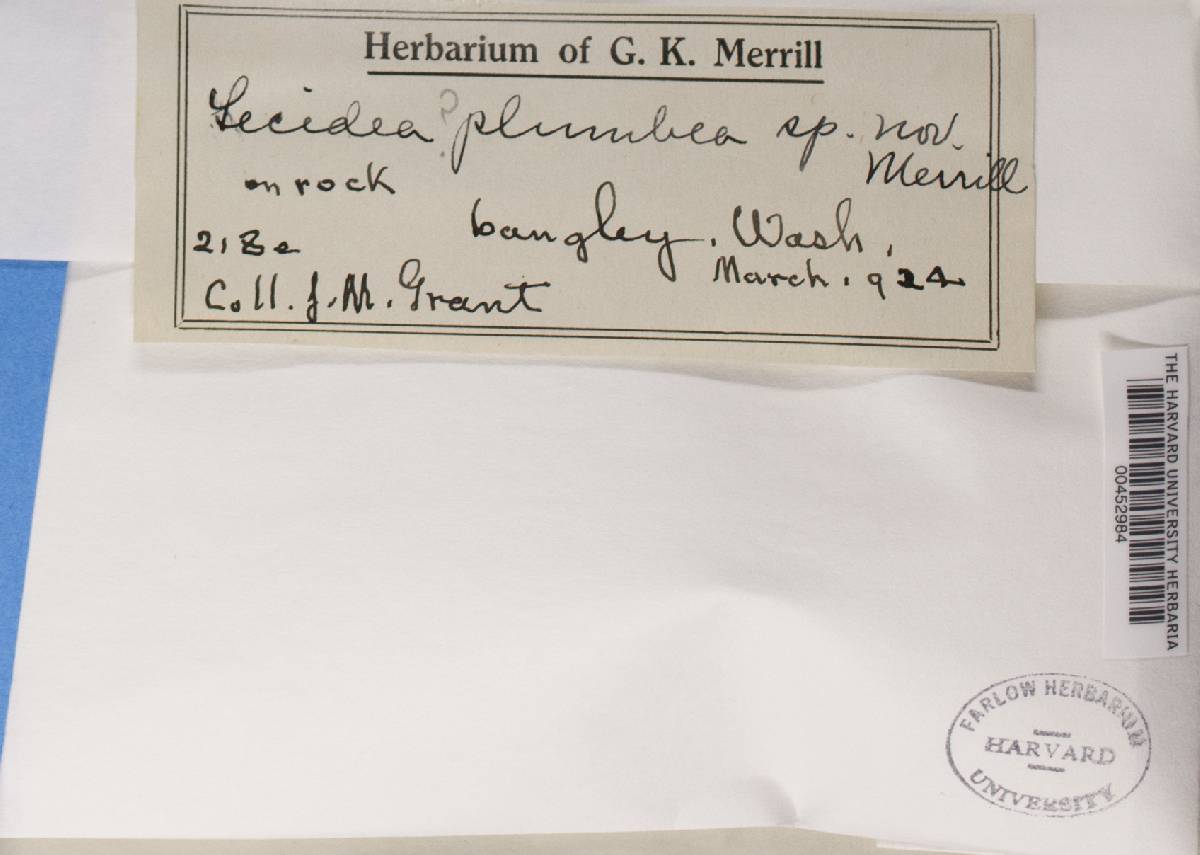 Herbarium of G. K. Merrill
Lecidea ? plumbea sp. nov.
Merrill
on rock
Langley. Wash.
218e
March. 924
Coll. J. M. Grant
THE HARVARD UNIVERSITY HERBARIA
00452984
FARLOW HERBARIUM
HARVARD
UNIVERSITY